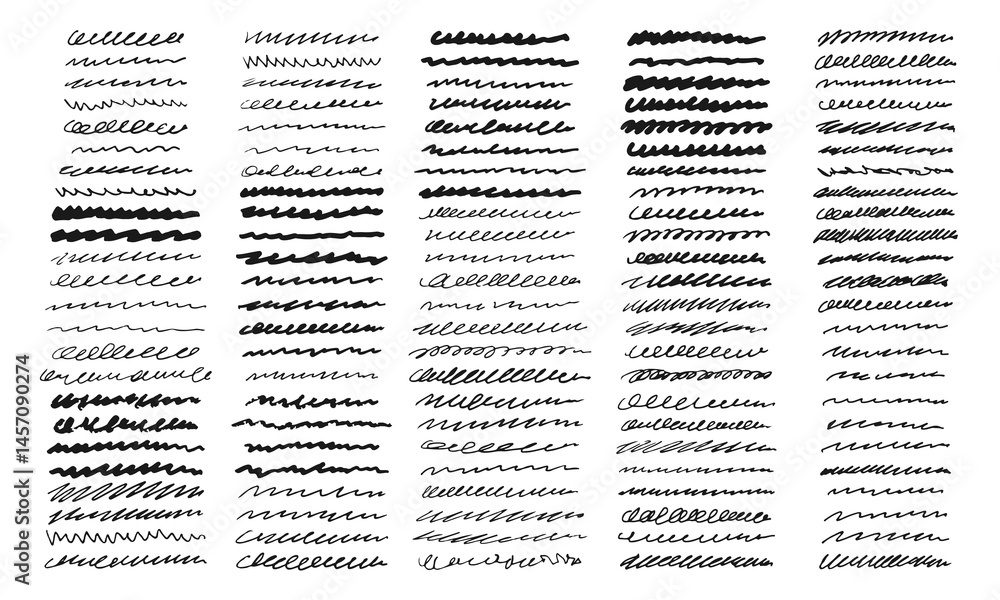 Adobe Stock | #1457090274